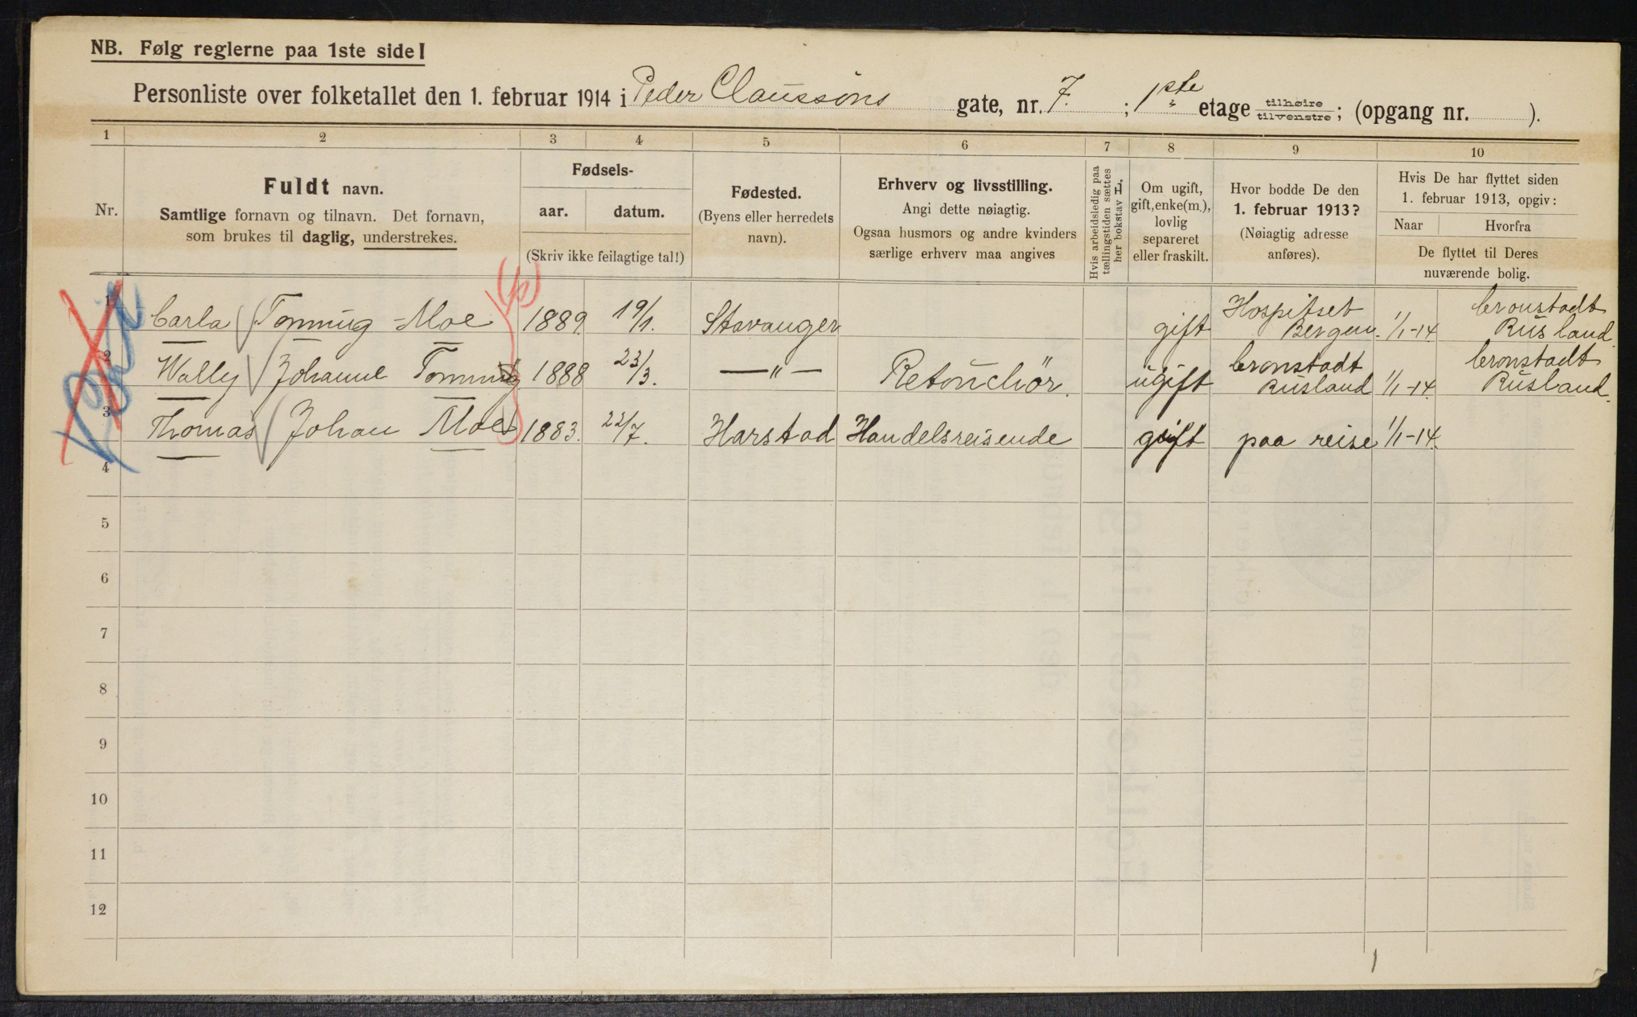 NB. Følg reglerne paa 1ste side!
Personliste over folketallet den 1. februar 1914 i Peder Claussøns gate, nr. 7. ; 1ste etage tilhøire tilvenstre; (opgang nr. ).
1 2 3 4 5 6 7 8 9 10
Nr.
Fuldt navn.
Samtlige fornavn og tilnavn. Det fornavn,
som brukes til daglig, understrekes.
Fødsels-
aar. datum.
(Skriv ikke feilagtige tal!)
Fødested.
(Byens eller herredets
navn).
Erhverv og livsstilling.
Angi dette nøiagtig.
Ogsaa husmors og andre kvinders
særlige erhverv maa angives
Hvis arbeidsledig paa
tællingstiden sættes
her bokstav L.
Om ugift,
gift, enke(m.),
lovlig
separeret
eller fraskilt.
Hvor bodde De den
1. februar 1913?
(Nøiagtig adresse
anføres).
Hvis De har flyttet siden
1. februar 1913, opgiv:
Naar Hvorfra
De flyttet til Deres
nuværende bolig.
1 Carla Tonning-Moe 1889 19/1. Stavanger gift Hospitset Bergen. 1/1-14 Cronstadt Rusland.
2 Wally Johanne Tonning 1888 23/3. —"— Retouchör. ugift Cronstadt Rusland 1/1-14. Cronstadt Rusland.
3 Thomas Johan Moe 1883. 22/7. Harstad Handelsreisende gift paa reise 1/1-14.
4
5
6
7
8
9
10
11
12